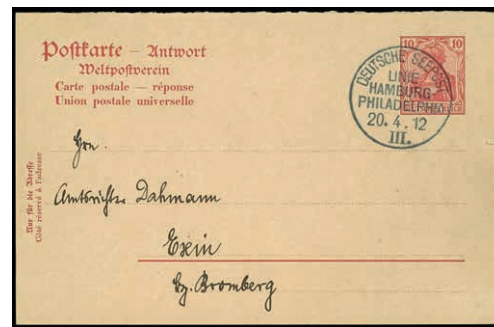 Postkarte – Antwort
Weltpostverein
Carte postale — réponse
Union postale universelle
10 10
DEUTSCHE SEEPOST
LINIE
HAMBURG-
PHILADELPHIA
20. 4. 12
III.
Nur für die Adresse
Côté réservé à l'adresse
Hrn.
Amtsrichter Dahmann
Exin
bz. Bromberg